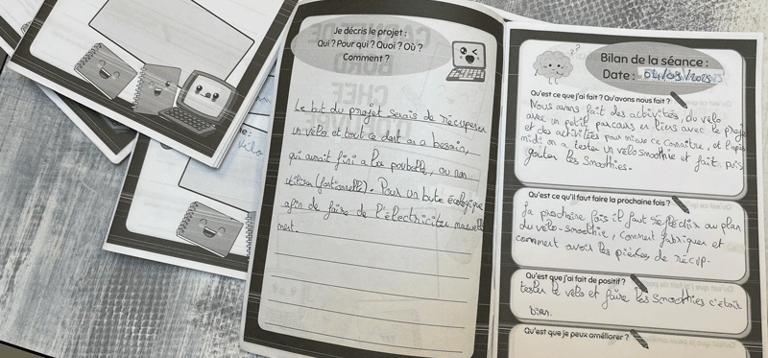 Je décris le projet :
Qui ? Pour qui ? Quoi ? Où ?
Comment ?
Le but du projet serais de récuperer
un vélo et tout ce dont on a besoin,
qui aurait fini a la poubelle, ou non
utiliser (fonctionnelle). Pour un bute écologique
afin de faire de l'électricitée manuelle
ment.
Bilan de la séance :
Date :
Qu'est ce que j'ai fait ? Qu'avons nous fait ?
Nous avons fait des activités, du vélo
avec un petit parcours en liens avec le projet
et des activitées pour mieux ce connaitre, et l'après
midi on a tester un vélo smoothie et fait, puis
gouter les smoothies.
Qu'est ce qu'il faut faire la prochaine fois ?
La prochaine fois il faut réfléchir au plan
du vélo-smoothie, comment fabriquer et
comment avoir les pièces, de récup.
Qu'est que j'ai fait de positif ?
tester le vélo et faire les smoothies c'était
bien.
Qu'est que je peux améliorer ?